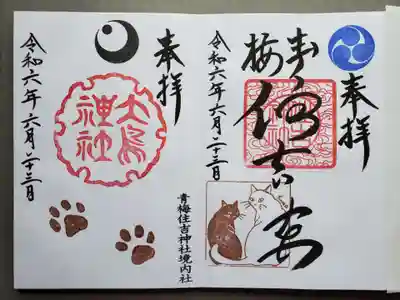 奉拝
青梅
住吉
令和六年六月二十三日
奉拝
大鳥
神社
青梅住吉神社境内社
令和六年六月二十三日